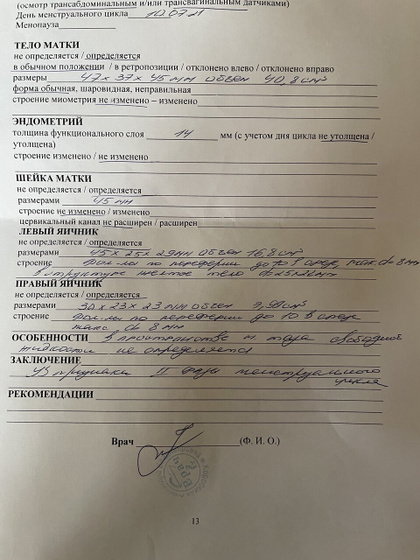 (осмотр трансабдоминальным и/или трансвагинальным датчиками)
День менструального цикла 10.07.21
Менопауза
ТЕЛО МАТКИ
не определяется / определяется
в обычном положении / в ретропозиции / отклонено влево / отклонено вправо
размеры 47 х 37 х 45 мм объем 40,8 см³
форма обычная, шаровидная, неправильная
строение миометрия не изменено – изменено
ЭНДОМЕТРИЙ
толщина функционального слоя 14 мм (с учетом дня цикла не утолщена /
утолщена)
строение изменено / не изменено
ШЕЙКА МАТКИ
не определяется / определяется
размерами 45 мм
строение не изменено / изменено
цервикальный канал не расширен / расширен
ЛЕВЫЙ ЯИЧНИК
не определяется / определяется
размерами 45 х 25 х 29 мм объем 16,8 см³
строение по периферии до 10 в срезе, макс do 8 мм
в структуре желтое тело
ПРАВЫЙ ЯИЧНИК
не определяется / определяется
размерами 30 х 23 х 23 мм объем
строение по периферии до 10 в срезе
макс do 8 мм
ОСОБЕННОСТИ В пространстве м. таза свободной
жидкости не определяется
ЗАКЛЮЧЕНИЕ
УЗ признаки II фазы менструального
цикла
РЕКОМЕНДАЦИИ
Врач (Ф. И. О.)
Врач
13